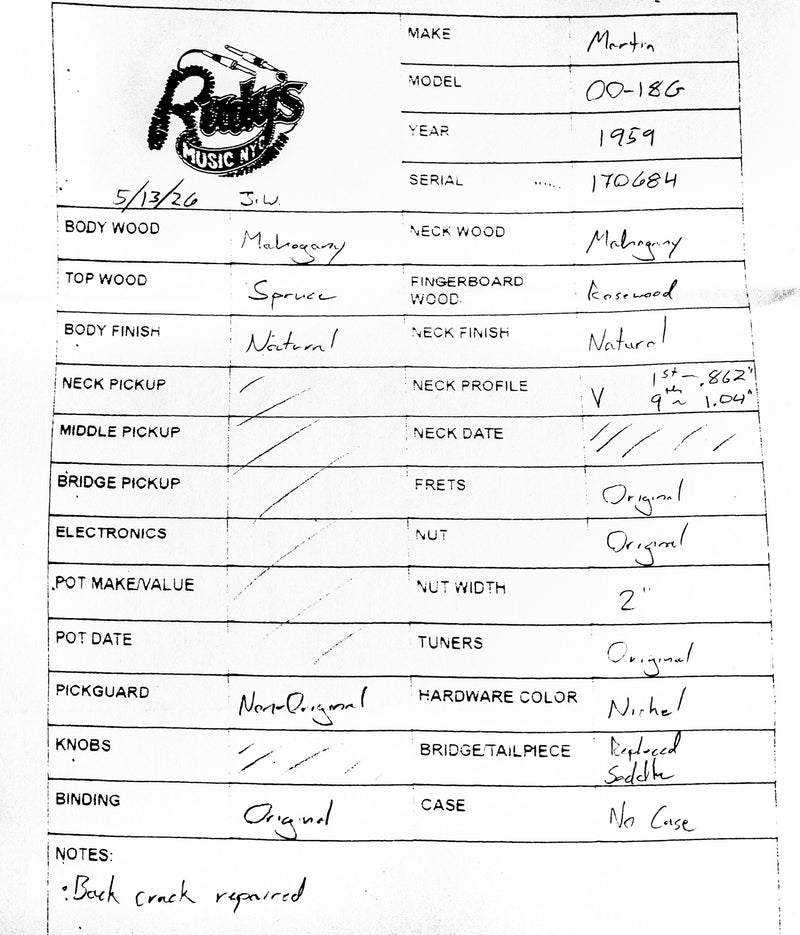 Rudy's
MUSIC NYC
5/13/26 J.W.
MAKE Martin
MODEL 00-18G
YEAR 1959
SERIAL 170684
BODY WOOD Mahogany NECK WOOD Mahogany
TOP WOOD Spruce FINGERBOARD WOOD Rosewood
BODY FINISH Natural NECK FINISH Natural
NECK PICKUP NECK PROFILE V 1st ~ .862"
9th ~ 1.04"
MIDDLE PICKUP NECK DATE
BRIDGE PICKUP FRETS Original
ELECTRONICS NUT Original
POT MAKE/VALUE NUT WIDTH 2"
POT DATE TUNERS Original
PICKGUARD Non-Original HARDWARE COLOR Nickel
KNOBS BRIDGE/TAILPIECE Replaced
Saddle
BINDING Original CASE No Case
NOTES:
• Back crack repaired